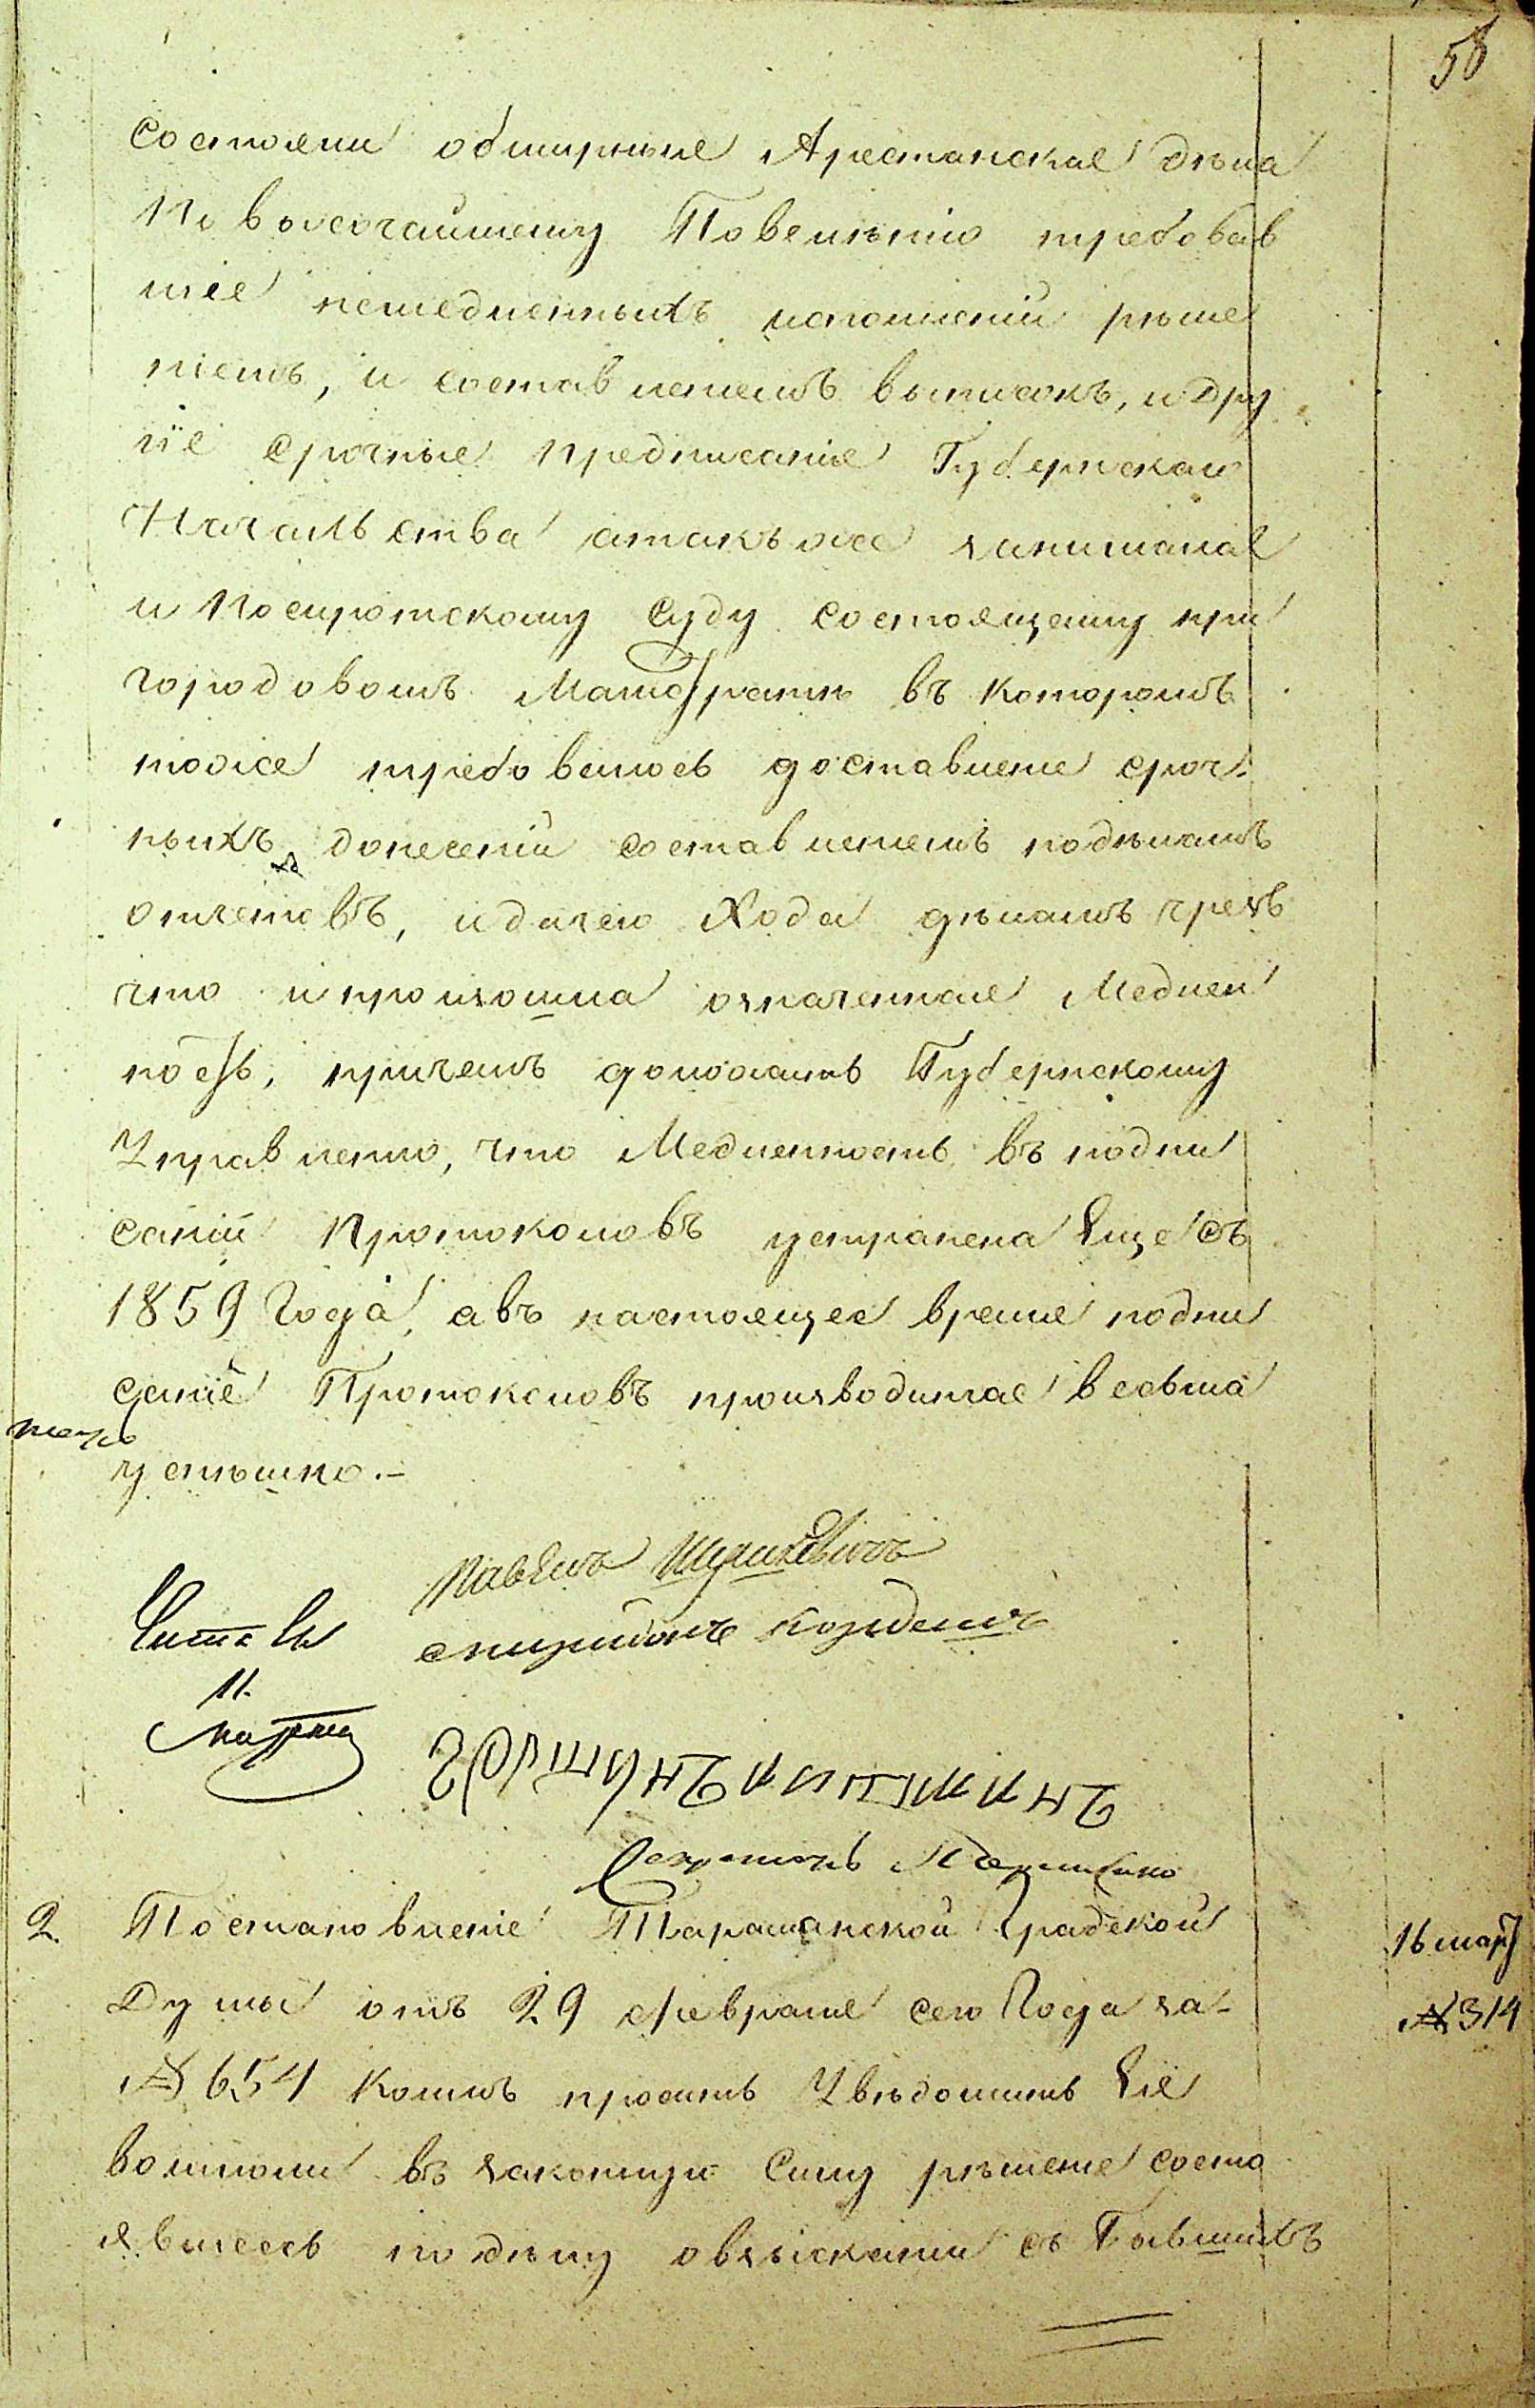 58
состояли обширные Арестанскія дѣла
По высочайшему Повелѣнію требовав
шіе немедленныхъ исполненій рѣше
ніемъ, и составленіемъ выписокъ, и дру
гіе срочные предписаніе Губернскаго
Начальства атакъже занимался
и Посиротскому Суду состоящему при
городовомъ Магистратѣ въ которомъ
тоже требовалось доставленіе сроч-
ныхъ донесеній составленіемъ подѣламъ
отчетовъ, идачею Хода дѣламъ чрезъ
что ипроизошла означенная Медлен
ность, причемъ доложить Губернскому
Управленію, что Медленность въ подпи
саніи Протоколовъ устранена Еще съ
1859 Года, авъ настоящее время подпи
саніе Протоколовъ производится весьма
успѣшно.-
Павелъ
Спиридонъ
Читалъ
2. Постановленіе Таращанской Градской
Думы отъ 29 Февраля сего Года за-
№ 654 Коимъ проситъ Увѣдомить Ее
вошлоли въ законную Силу рѣшеніе состо
явшееся подѣлу овзысканіи съ Бывшихъ
16 мар
№ 314